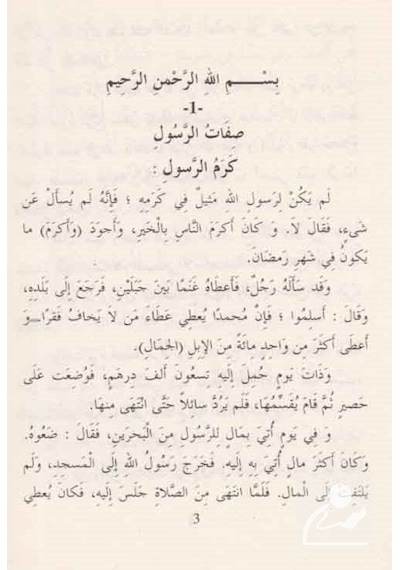 بِسْـــمِ اللهِ الرَّحْمنِ الرَّحِيمِ
-1-
صِفَاتُ الرَّسُولِ
كَرَمُ الرَّسولِ :
لَم يَكُنْ لِرَسولِ اللهِ مَثيلٌ فِي كَرَمِهِ ؛ فَإِنَّهُ لَم يُسأَلْ عَن
شَيءٍ، فَقَالَ لاَ. وَ كَانَ أَكرَمَ النَّاسِ بِالْخَيرِ، وَأَجوَدَ (وَأَكرَمَ) ما
يَكونُ فِي شَهرِ رَمضَانَ.
وَقَد سَأَلَهُ رَجُلٌ، فَأَعطَاهُ غَنَمًا بَينَ جَبَلَيْنِ، فَرَجَعَ إِلَى بَلَدِهِ،
وَقَالَ : أَسلِمُوا ؛ فَإِنَّ مُحمدًا يُعطِي عَطَاءَ مَن لاَ يَخافُ فَقرًا. وَ
أَعطَى أَكثَرَ مِن وَاحِدٍ مِائَةً مِنَ الإِبِلِ (الجِمَالِ).
وَذَاتَ يَومٍ حُمِلَ إِلَيهِ تِسعُونَ أَلفَ دِرهَمٍ، فَوُضِعَت عَلَى
حَصيرٍ ثُمَّ قَامَ يُقَسِّمُهَا، فَلَم يَرُدَّ سائِلاً حَتَّى انْتَهَى مِنهَا.
وَ فِي يَومٍ أُتِيَ بِمَالٍ لِلرَّسُولِ مِنَ الْبَحرَينِ، فَقَالَ : ضَعُوهُ.
وَكَانَ أَكثَرَ مالٍ أُتِيَ بِهِ إِلَيهِ. فَخَرَجَ رَسُولُ اللهِ إِلَى الْمَسجِدِ، وَلَم
يَلتَفِتْ إِلَى الْمالِ. فَلَمَّا انتَهَى مِنَ الصَّلاةِ جَلَسَ إِلَيهِ، فَكَانَ يُعطِي
3